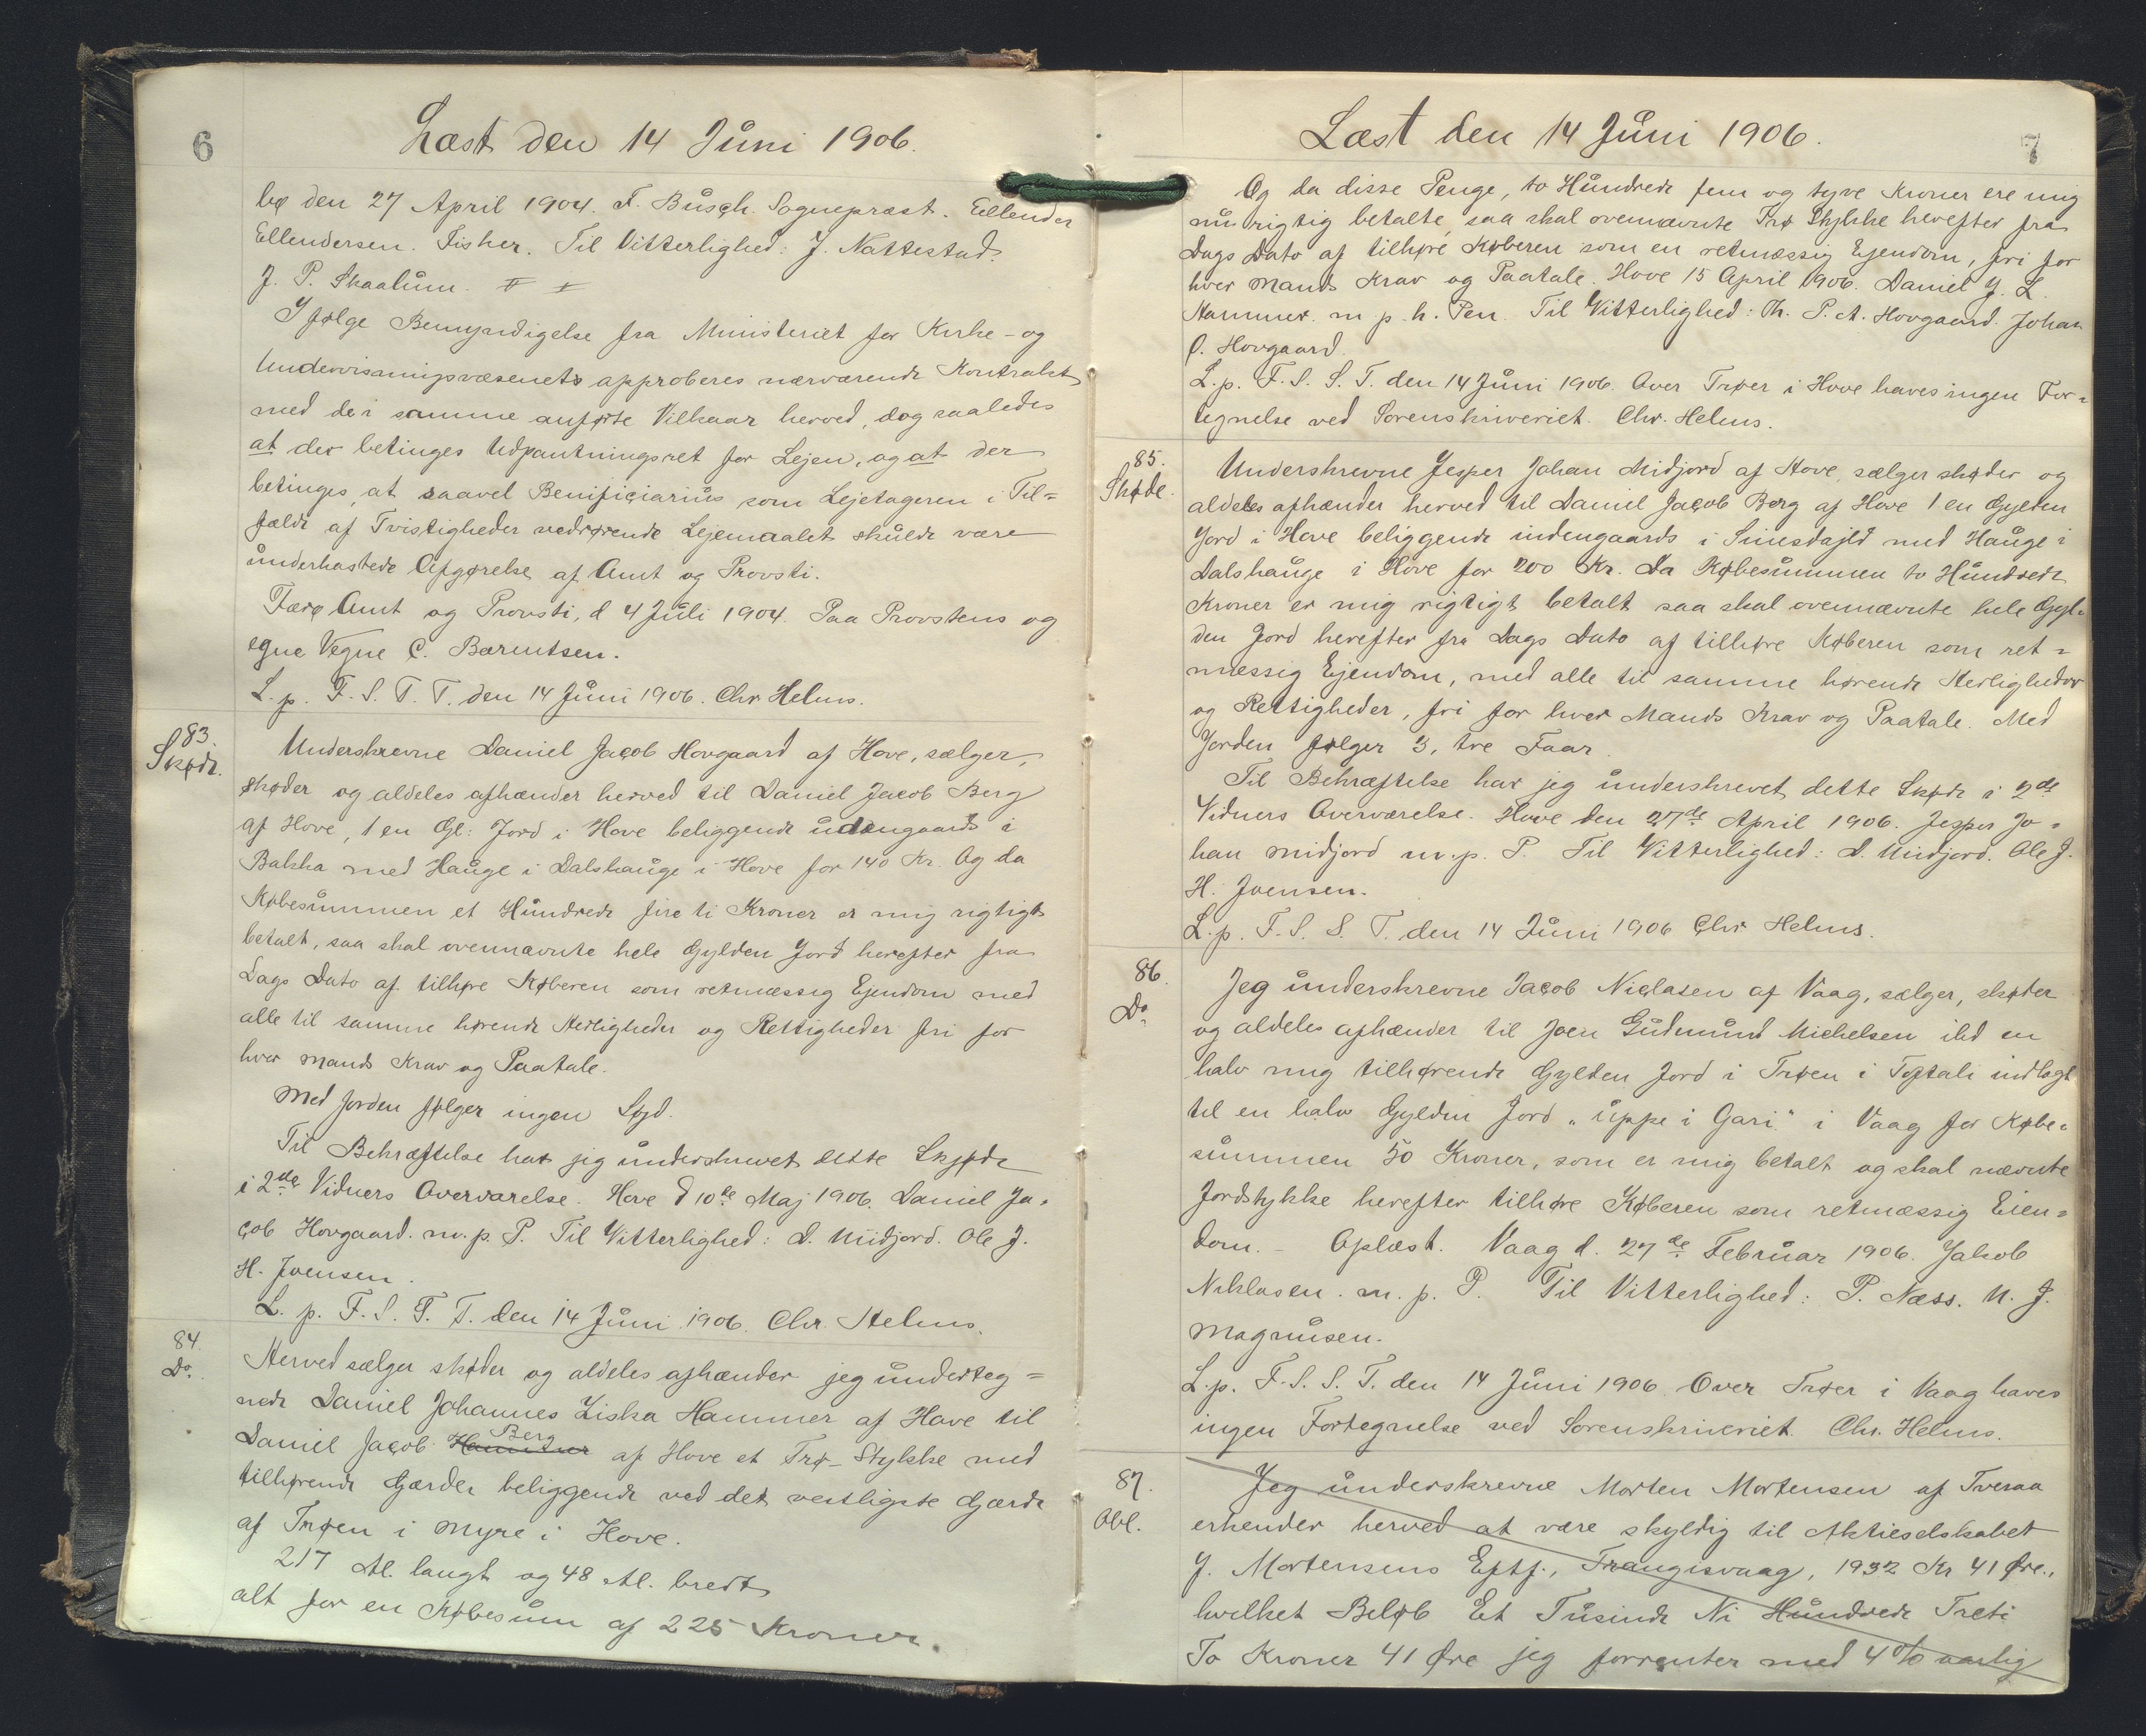 6
Læst den 14 Juni 1906.
bø den 27 April 1904. F. Busch. Sognepræst. Ellender
Ellendersen. Fisker. Til Vitterlighed: J. Nattestad.
J. P. Skaalum.
Ifølge Bemyndigelse fra Ministeriet for Kirke- og
Undervisningsvæsenets approberes nærværende Kontrakt
med de i samme anførte Vilkaar herved, dog saaledes
at der betinges Udpantningsret for Lejen, og at der
betinges, at saavel Benificiarius som Lejetageren i Til-
fælde af Tvistigheder vedrørende Lejemaalet skulde være
underkastede Afgørelse af Amt og Provsti.
Færø Amt og Provsti, d 4 Juli 1904. Paa Provstens og
egne Vegne C. Bærentsen.
L. p. F. S. T. T. den 14 Juni 1906. Chr Helms.
83.
Skøde.
Underskrevne Daniel Jacob Hovgaard af Hove, sælger,
skøder og aldeles afhænder herved til Daniel Jacob Berg
af Hove, 1 en Gl: Jord i Hove beliggende udengaards i
Bakka med Hauge i Dalshauge i Hove for 140 Kr. Og da
Købesummen et Hundrede fire ti Kroner er mig rigtigt
betalt, saa skal ovennævnte hele Gylden Jord herefter fra
Dags Dato af tilhøre Køberen som retmæssig Ejendom med
alle til samme hørende Herligheder og Rettigheder fri for
hver Mands Krav og Paatale.
Med Jorden følger ingen Lod.
Til Bekræftelse har jeg underskrevet dette Skjøde
i 2de Vidners Overværelse. Hove d 10de Maj 1906. Daniel Ja-
cob Hovgaard. m. p. P. Til Vitterlighed: D. Midjord. Ole J.
H. Joensen.
L. p. F. S. S. T. den 14 Juni 1906. Chr. Helms.
84.
Do.
Herved sælger skøder og aldeles afhænder jeg underteg-
nede Daniel Johannes Ziska Hammer af Hove til
Berg
Daniel Jacob Hammer af Hove et Trø-Stykke med
tilhørende Gærder beliggende ved det vestligste Gærde
af Trøen i Myre i Hove.
217 Al. langt og 48 Al. bredt
alt for en Købesum af 225 Kroner.
7
Læst den 14 Juni 1906.
Og da disse Penge, to Hundrede fem og tyve Kroner ere mig
nu rigtig betalte, saa skal ovennævnte Trø Stykke herefter fra
Dags Dato af tilhøre Køberen som en retmæssig Ejendom, fri for
hver Mands Krav og Paatale. Hove 15 April 1906. Daniel J. Z.
Hammer. m. p. h. Pen. Til Vitterlighed: Th. P. A. Hovgaard. Johan
O. Hovgaard.
L. p. F. S. S. T. den 14 Juni 1906. Over Trøer i Hove haves ingen For-
tegnelse ved Sorenskriveriet. Chr. Helms.
85.
Skøde.
Underskrevne Jesper Johan Midjord af Hove, sælger skøder og
aldeles afhænder herved til Daniel Jacob Berg af Hove 1 en Gylden
Jord i Hove beliggende indengaards i Sinesdajld med Hauge i
Dalshauge i Hove for 200 Kr. Da Købesummen to Hundrede
Kroner er mig rigtigt betalt saa skal ovennævnte hele Gyl-
den Jord herefter fra Dags Dato af tilhøre Køberen som ret-
mæssig Ejendom, med alle til samme hørende Herligheder
og Rettigheder, fri for hver Mands Krav og Paatale. Med
Jorden følger 3, tre Faar.
Til Bekræftelse har jeg underskrevet dette Skøde i 2de
Vidners Overværelse. Hove den 27de April 1906. Jesper Jo-
han Midjord m. p. P. Til Vitterlighed: D. Midjord. Ole J.
H. Joensen.
L. p. F. S. S. T. den 14 Juni 1906 Chr Helms.
86.
Do.
Jeg underskrevne Jacob Niclasen af Vaag, sælger, skøder
og aldeles afhænder til Joen Gudmund Michelsen ibd en
halv mig tilhørende Gylden Jord i Trøen i Toftali indlagt
til en halv Gylden Jord „uppe i Gari" i Vaag for Købe-
summen 50 Kroner, som er mig betalt og skal nævnte
Jordstykke herefter tilhøre Køberen som retmæssig Eien-
dom. - Oplæst. Vaag d. 27de Februar 1906. Jakob
Niklasen. m. p. P. Til Vitterlighed: P. Næss. N. J.
Magnusen.
L. p. F. S. S. T. den 14 Juni 1906. Over Trøer i Vaag haves
ingen Fortegnelse ved Sorenskriveriet. Chr. Helms.
87.
Obl.
Jeg underskrevne Morten Mortensen af Tveraa
erkender herved at være skyldig til Aktieselskabet
J. Mortensens Eftf., Trangisvaag, 1932 Kr 41 Øre.,
hvilket Beløb Et Tusinde Ni Hundrede Treti
To Kroner 41 Øre jeg forrenter med 4% aarlig